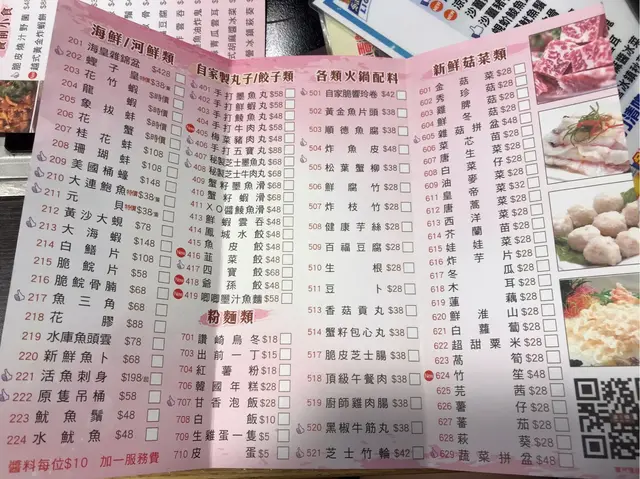 海鮮/河鮮類
201 海皇雜錦盆 $428
202 蟶子皇 特價$38/隻
203 花竹蝦 $時價
204 龍蝦 $時價
205 象拔蚌 $時價
206 花蟹 $時價
207 桂花蚌 $108
208 珊瑚蚌 $108
209 美國桶蠔 $148
210 大連鮑魚 特價$38/隻
211 元貝 特價$38/隻
212 黃沙大蜆 $78
213 大海蝦 $148
214 白鱔片 $108
215 脆鯇片 $58
216 脆鯇骨腩 $68
217 魚三角 $68
218 花膠 $88
219 水庫魚頭雲 $78
220 新鮮魚卜 $68
221 活魚刺身 $198起
222 原隻吊桶 $58
223 魷魚鬚 $48
224 水魷魚 $48
醬料每位$10 加一服務費
自家製丸子/餃子類
401 手打墨魚丸 $58
402 手打鮮蝦丸 $58
403 手打鯪魚丸 $48
404 手打牛肉丸 $48
405 梅菜豬肉丸 $48
406 手打五寶丸 $58
407 秘製芝士墨魚丸 $68
408 秘製芝士牛肉丸 $68
409 蟹籽墨魚滑 $68
410 蟹籽蝦滑 $68
411 XO醬鯪魚滑 $58
413 鮮蝦雲吞 $48
414 鳳城水餃 $48
415 魚皮餃 $48
416 韮菜餃 $48
417 四寶餃 $68
418 孖孫餃 $68
419 唧唧墨汁魚麵 $58
粉麵類
701 讚崎烏冬 $18
703 出前一丁 $15
704 紅薯粉 $18
706 韓國年糕 $28
707 甘香泡飯 $28
708 白飯 $10
709 生雞蛋一隻 $5
710 皮蛋 $5
各類火鍋配料
501 自家脆響玲卷 $42
502 黃金魚片頭 $38
503 順德魚腐 $38
504 炸魚皮 $48
505 松葉蟹柳 $38
506 鮮腐竹 $28
507 炸枝竹 $28
508 健康芋絲 $28
509 百福豆腐 $28
510 生根 $28
511 豆卜 $28
513 香菇貢丸 $38
514 蟹籽包心丸 $38
517 脆皮芝士腸 $38
518 頂級午餐肉 $38
519 廚師雞肉腸 $38
520 黑椒牛筋丸 $38
521 芝士竹輪 $42
新鮮菇菜類
601 金菇菜 $28
602 秀珍菇 $28
603 雞脾菇 $28
604 鮮冬菇 $28
605 雜菇拼盆 $48
606 唐生菜 $28
607 芯菜 $28
608 菠菜 $28
609 白菜仔 $28
610 油麥菜 $28
611 皇帝菜 $32
612 唐萵菜 $28
613 西洋菜 $28
614 芥蘭苗 $28
615 娃娃菜 $28
616 炸芋片 $28
617 冬瓜 $28
618 木耳 $28
619 蓮藕 $28
620 鮮淮山 $28
621 白蘿蔔 $28
622 超甜粟米 $28
623 萵筍 $28
624 竹笙 $48
625 芫茜 $28
626 薯仔 $28
627 番茄 $28
628 萩葵 $28
629 蔬菜拼盆 $48